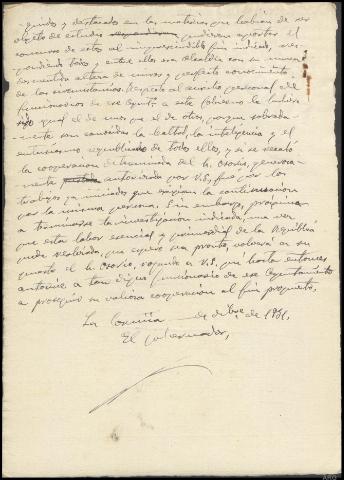 guidos y destacados en las materias que habían de ser
objeto de estudio pudieran aportar el
concurso de estos al imprescindible fin indicado, res-
pondiendo todos y entre ellos esa alcaldía con su
altura de miras y perfecto conocimiento
de las circunstancias. Respecto al auxilio personal de
funcionarios de ese Ayunto. a este Gobierno le hubiera
sido igual el de unos que el de otros, porque sobrada-
mente son conocidas la lealtad, la inteligencia y el
entusiasmo republicano de todos ellos, y si se recabó
la cooperación determinada del Sr. Osorio, generosa-
mente autorizada por V.S., fué por los
trabajos ya iniciados que exigían la continuación
por la misma persona. Sin embargo, próxima
a terminarse la investigación indicada, una vez
que esta labor esencial y primordial de la República
quede resolvida, que espero sea pronto, volverá a su
puesto el Sr. Osorio, rogando a V.S. que hasta entonces
autorice a tan digno funcionario de ese Ayuntamiento
a proseguir su valiosa cooperación al fin propuesto.
La Coruña de dibre. de 1931.
El Gobernador,